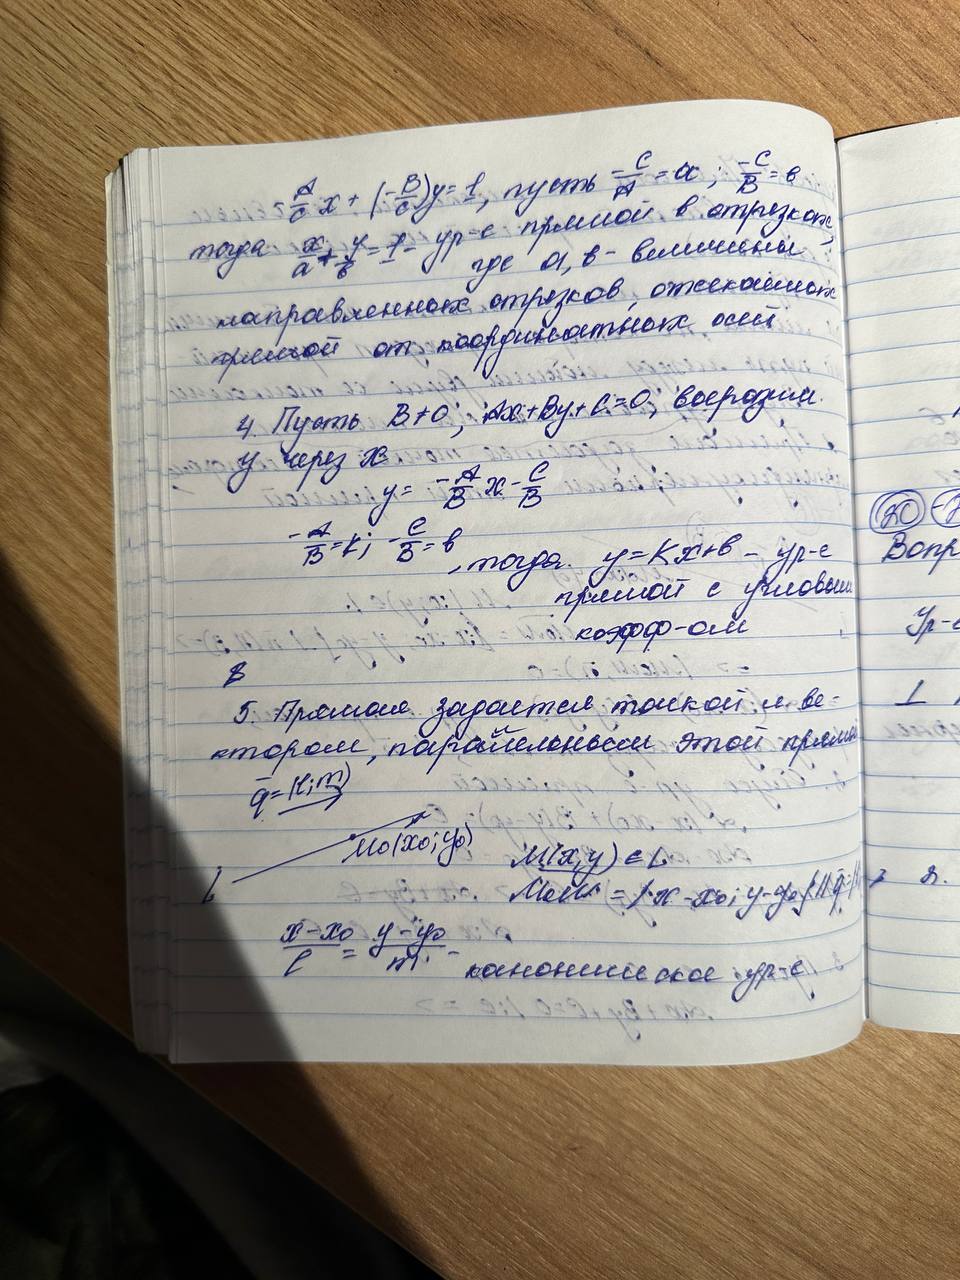 -A/C x + (-B/C)y = 1, пусть -C/A = a; -C/B = в
тогда x/a + y/в = 1 - ур-е прямой в отрезках,
где a, в - величины
направленных отрезков, отсекаемых
прямой от координатных осей
4. Пусть B≠0; Ax+By+C=0, выразим
y через x
y = -A/B x - C/B
-A/B = k; -C/B = в, тогда y = Kx+в - ур-е
прямой с угловым
коэфф-ом
5. Прямая задается точкой и ве-
ктором, параллельным этой прямой
q̄ = (l; m)
M₀(x₀; y₀)
M(x, y) ∈ L
L
M₀M = (x - x₀; y - y₀) || q̄ =
(x-x₀)/l = (y-y₀)/m - каноническое ур-е
20
Вопр
Ур-е
1
2.